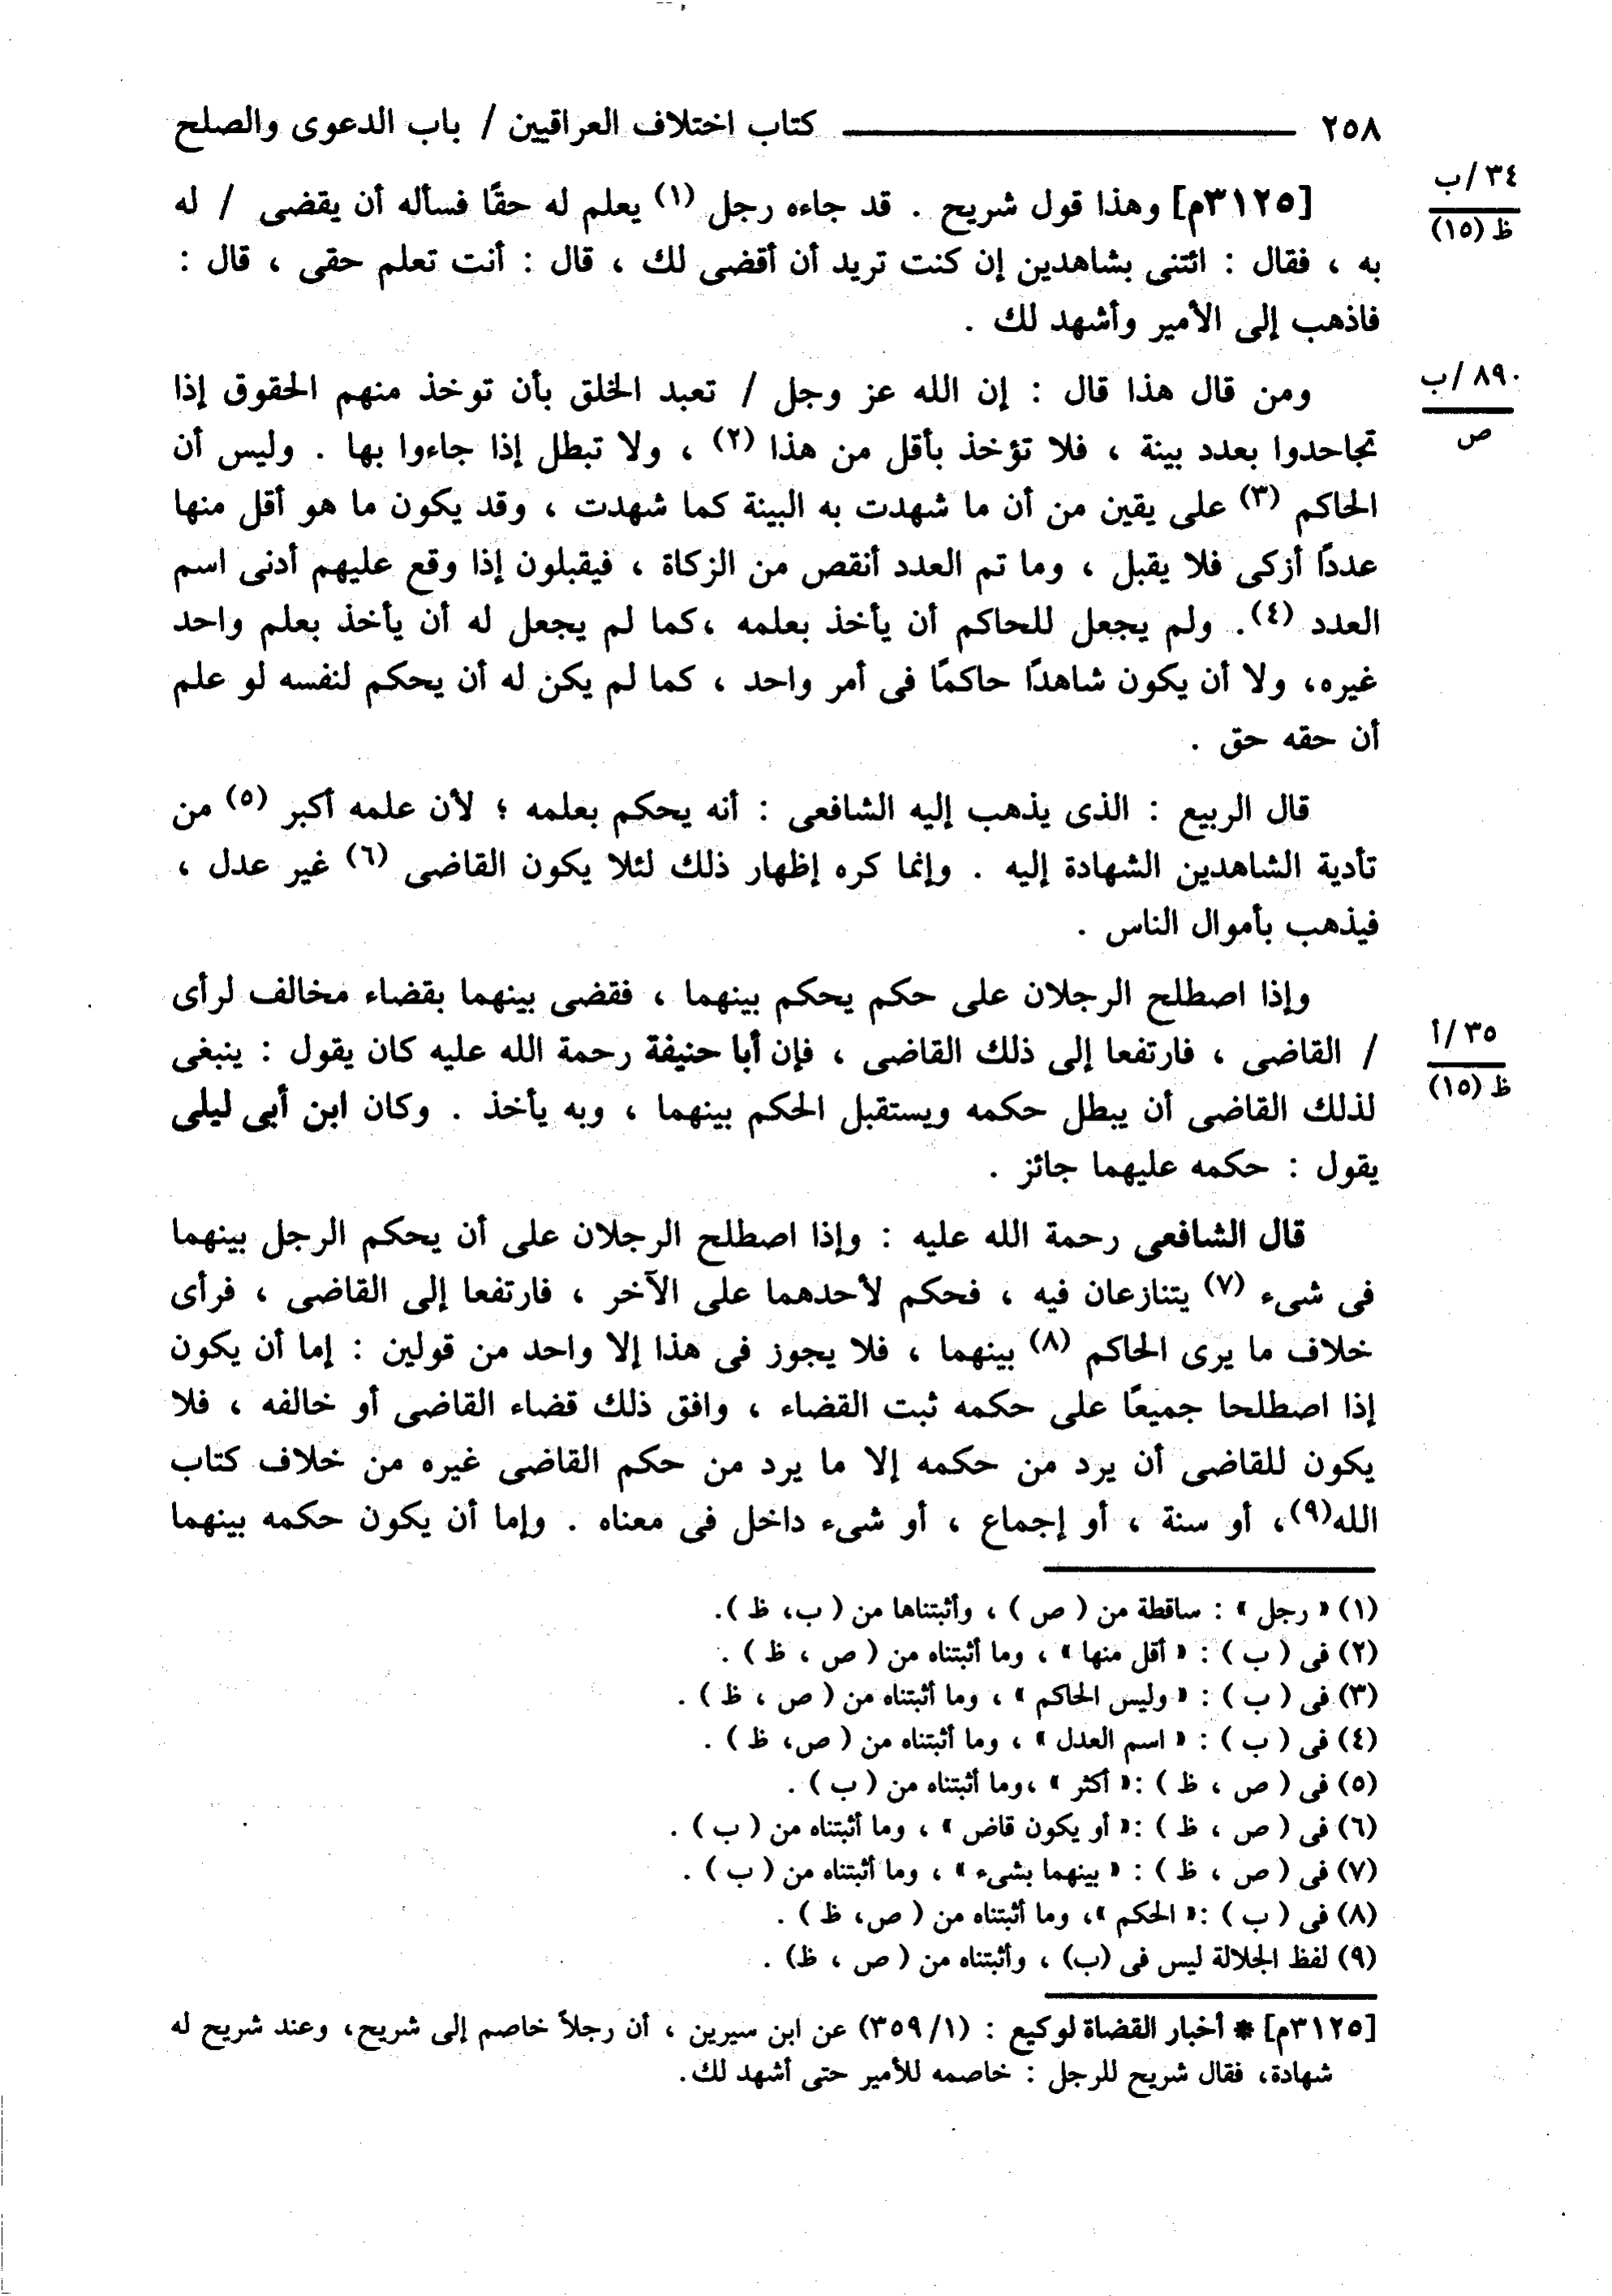 ٢٥٨ ـــــــــ كتاب اختلاف العراقيين / باب الدعوى والصلح
٣٤/ب
ظ (١٥)
[٣١٢٥م] وهذا قول شريح . قد جاءه رجل (١) يعلم له حقًا فسأله أن يقضى / له
به ، فقال : ائتنى بشاهدين إن كنت تريد أن أقضى لك ، قال : أنت تعلم حقى ، قال :
فاذهب إلى الأمير وأشهد لك .
٨٩٠/ب
ص
ومن قال هذا قال : إن الله عز وجل / تعبد الخلق بأن توخذ منهم الحقوق إذا
تجاحدوا بعدد بينة ، فلا تؤخذ بأقل من هذا (٢) ، ولا تبطل إذا جاءوا بها . وليس أن
الحاكم (٣) على يقين من أن ما شهدت به البينة كما شهدت ، وقد يكون ما هو أقل منها
عددًا أزكى فلا يقبل ، وما تم العدد أنقص من الزكاة ، فيقبلون إذا وقع عليهم أدنى اسم
العدد (٤). ولم يجعل للحاكم أن يأخذ بعلمه ،كما لم يجعل له أن يأخذ بعلم واحد
غيره، ولا أن يكون شاهدًا حاكمًا فى أمر واحد ، كما لم يكن له أن يحكم لنفسه لو علم
أن حقه حق .
قال الربيع : الذى يذهب إليه الشافعى : أنه يحكم بعلمه ؛ لأن علمه أكبر (٥) من
تأدية الشاهدين الشهادة إليه . وإنما كره إظهار ذلك لئلا يكون القاضى (٦) غير عدل ،
فيذهب بأموال الناس .
وإذا اصطلح الرجلان على حكم يحكم بينهما ، فقضى بينهما بقضاء مخالف لرأى
٣٥/أ
ظ (١٥)
/ القاضى ، فارتفعا إلى ذلك القاضى ، فإن أبا حنيفة رحمة الله عليه كان يقول : ينبغى
لذلك القاضى أن يبطل حكمه ويستقبل الحكم بينهما ، وبه يأخذ . وكان ابن أبى ليلى
يقول : حكمه عليهما جائز .
قال الشافعى رحمة الله عليه : وإذا اصطلح الرجلان على أن يحكم الرجل بينهما
فى شىء (٧) يتنازعان فيه ، فحكم لأحدهما على الآخر ، فارتفعا إلى القاضى ، فرأى
خلاف ما يرى الحاكم (٨) بينهما ، فلا يجوز فى هذا إلا واحد من قولين : إما أن يكون
إذا اصطلحا جميعًا على حكمه ثبت القضاء ، وافق ذلك قضاء القاضى أو خالفه ، فلا
يكون للقاضى أن يرد من حكمه إلا ما يرد من حكم القاضى غيره من خلاف كتاب
الله(٩)، أو سنة ، أو إجماع ، أو شىء داخل فى معناه . وإما أن يكون حكمه بينهما
(١) « رجل » : ساقطة من ( ص ) ، وأثبتناها من ( ب، ظ ).
(٢) فى ( ب ) : « أقل منها » ، وما أثبتناه من ( ص ، ظ ) .
(٣) فى ( ب ) : « وليس الحاكم » ، وما أثبتناه من ( ص ، ظ ) .
(٤) فى ( ب ) : « اسم العدل » ، وما أثبتناه من ( ص، ظ ) .
(٥) فى ( ص ، ظ ) :« أكثر » ،وما أثبتناه من ( ب ) .
(٦) فى ( ص ، ظ ) :« أو يكون قاض » ، وما أثبتناه من ( ب ) .
(٧) فى ( ص ، ظ ) : « بينهما بشىء » ، وما أثبتناه من ( ب ) .
(٨) فى ( ب ) :« الحكم »، وما أثبتناه من ( ص، ظ ) .
(٩) لفظ الجلالة ليس فى (ب) ، وأثبتناه من ( ص ، ظ) .
[٣١٢٥م] * أخبار القضاة لوكيع : (١/ ٣٥٩) عن ابن سيرين ، أن رجلاً خاصم إلى شريح، وعند شريح له
شهادة، فقال شريح للرجل : خاصمه للأمير حتى أشهد لك.